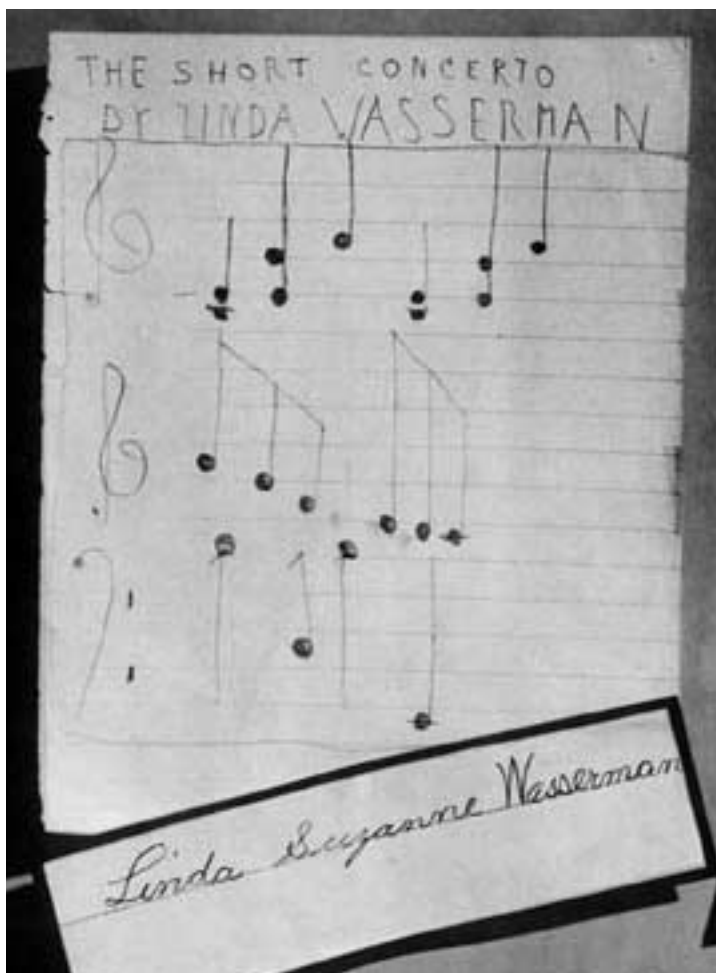 THE SHORT CONCERTO
BY LINDA VASSERMAN
Linda Suzanne Wasserman